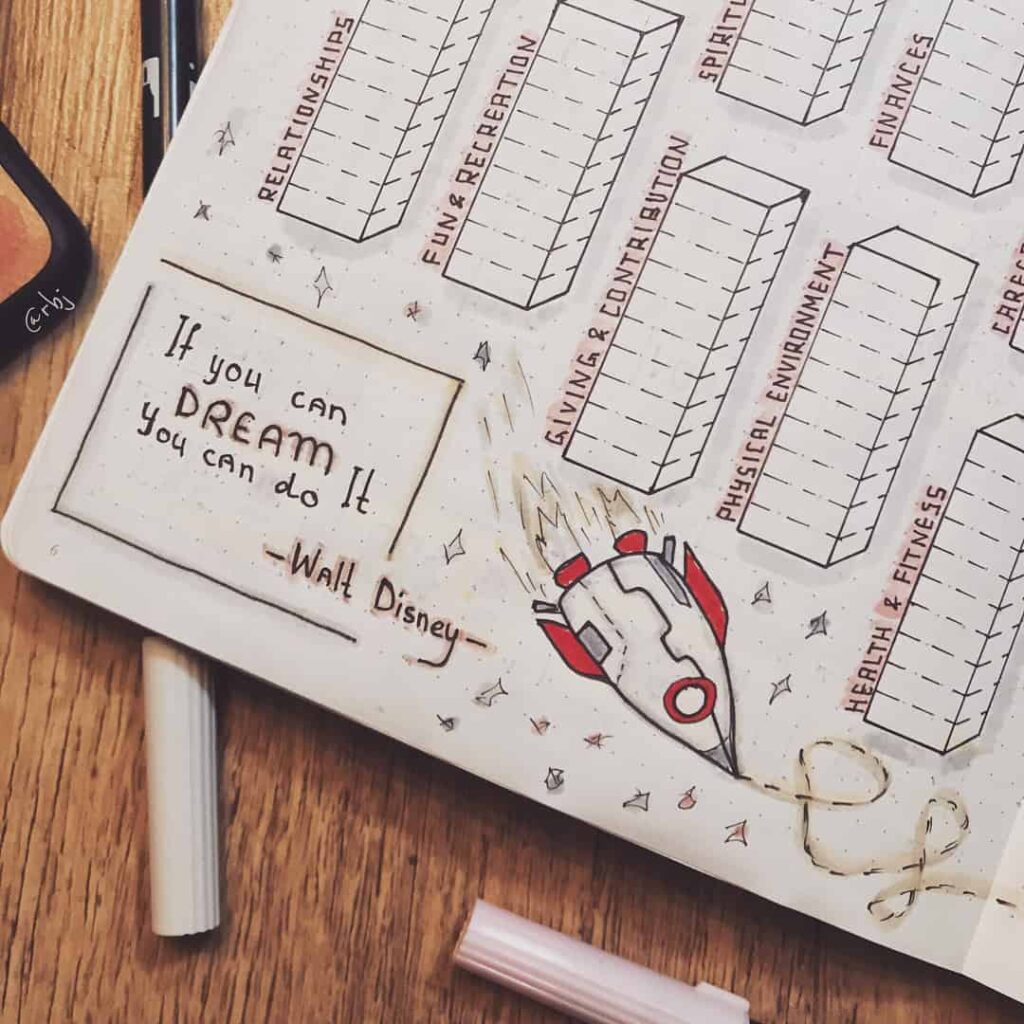 RELATIONSHIPS
FUN & RECREATION
FINANCES
GIVING & CONTRIBUTION
PHYSICAL ENVIRONMENT
HEALTH & FITNESS
If you can
DREAM It
you can do It
-Walt Disney-
6
@rbj